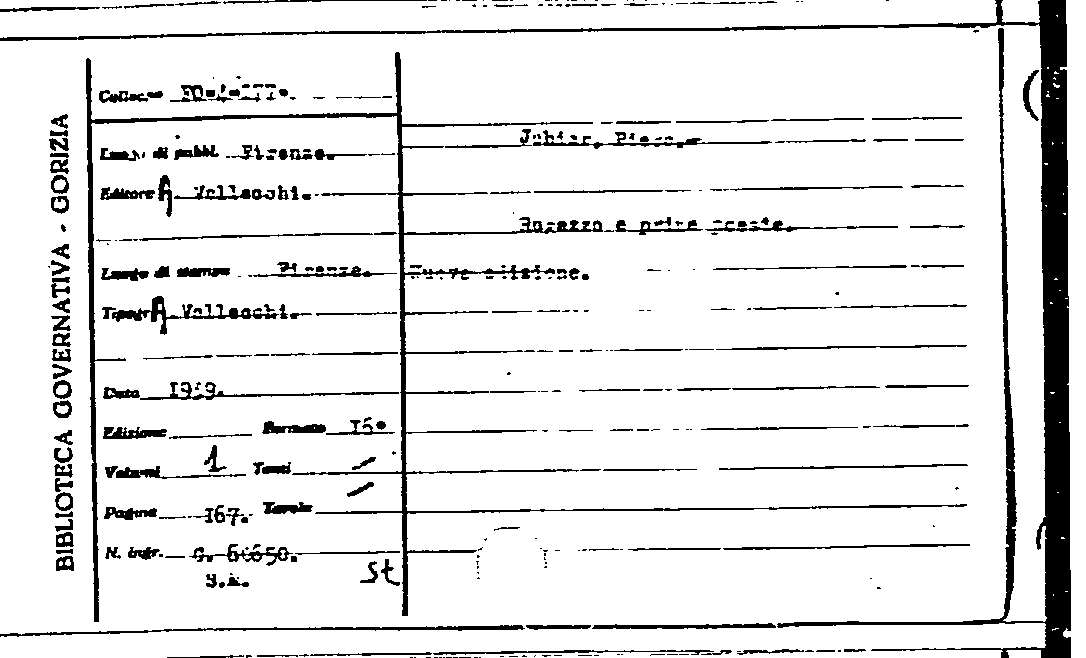 BIBLIOTECA GOVERNATIVA - GORIZIA
Collocaz.
Luogo di pubbl. Firenze.
Editore A. Vallecchi.
Luogo di stampa Firenze.
Tipogr. A. Vallecchi.
Data
Edizione Formato 16°
Volumi 1 Tomi /
Pagine 167. Tavole /
N. ingr.
st
Jahier, Piero.-
Ragazzo e prime poesie.
Nuova edizione.